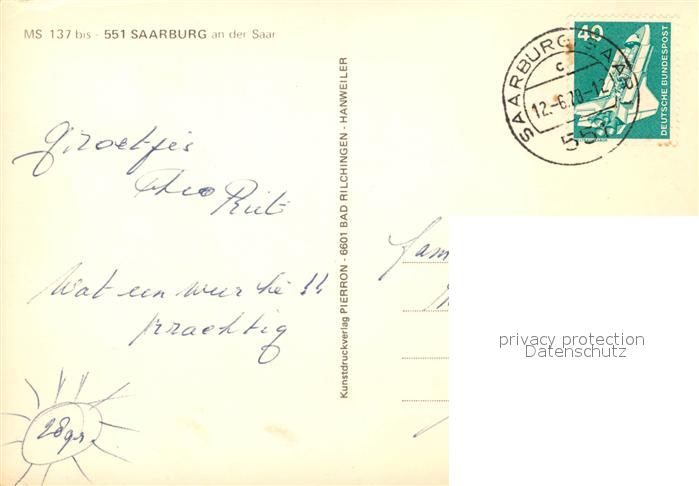 MS 137 bis - 551 SAARBURG an der Saar
Groetjes
Theo Riet
Wat een weer hè !!
prachtig
28 gr.
Kunstdruckverlag PIERRON - 6601 BAD RILCHINGEN - HANWEILER
SAARBURG SAAR
c
12.-6.
55
40
DEUTSCHE BUNDESPOST
Fam
privacy protection
Datenschutz